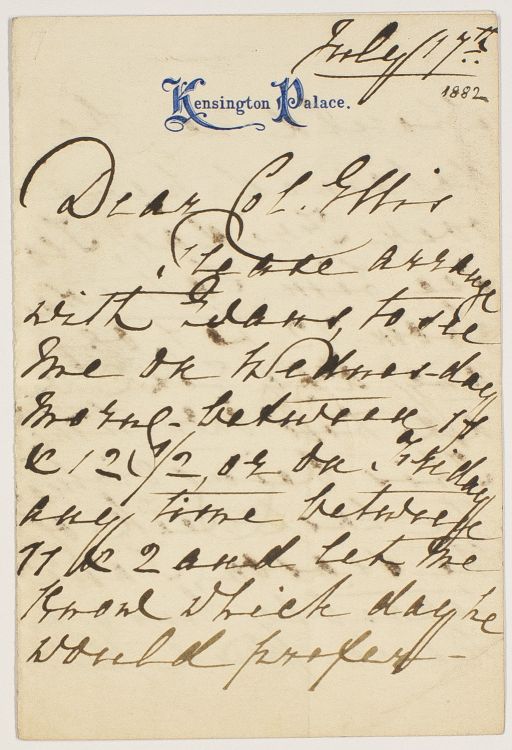 July 17th
1882
Kensington Palace.
Dear Col. Ellis
Please arrange
with Evans, to see
me on Wednesday
Morng. between 11
& 12 1/2, or on Friday
any time between
11 & 2 and let me
know which day he
would prefer -